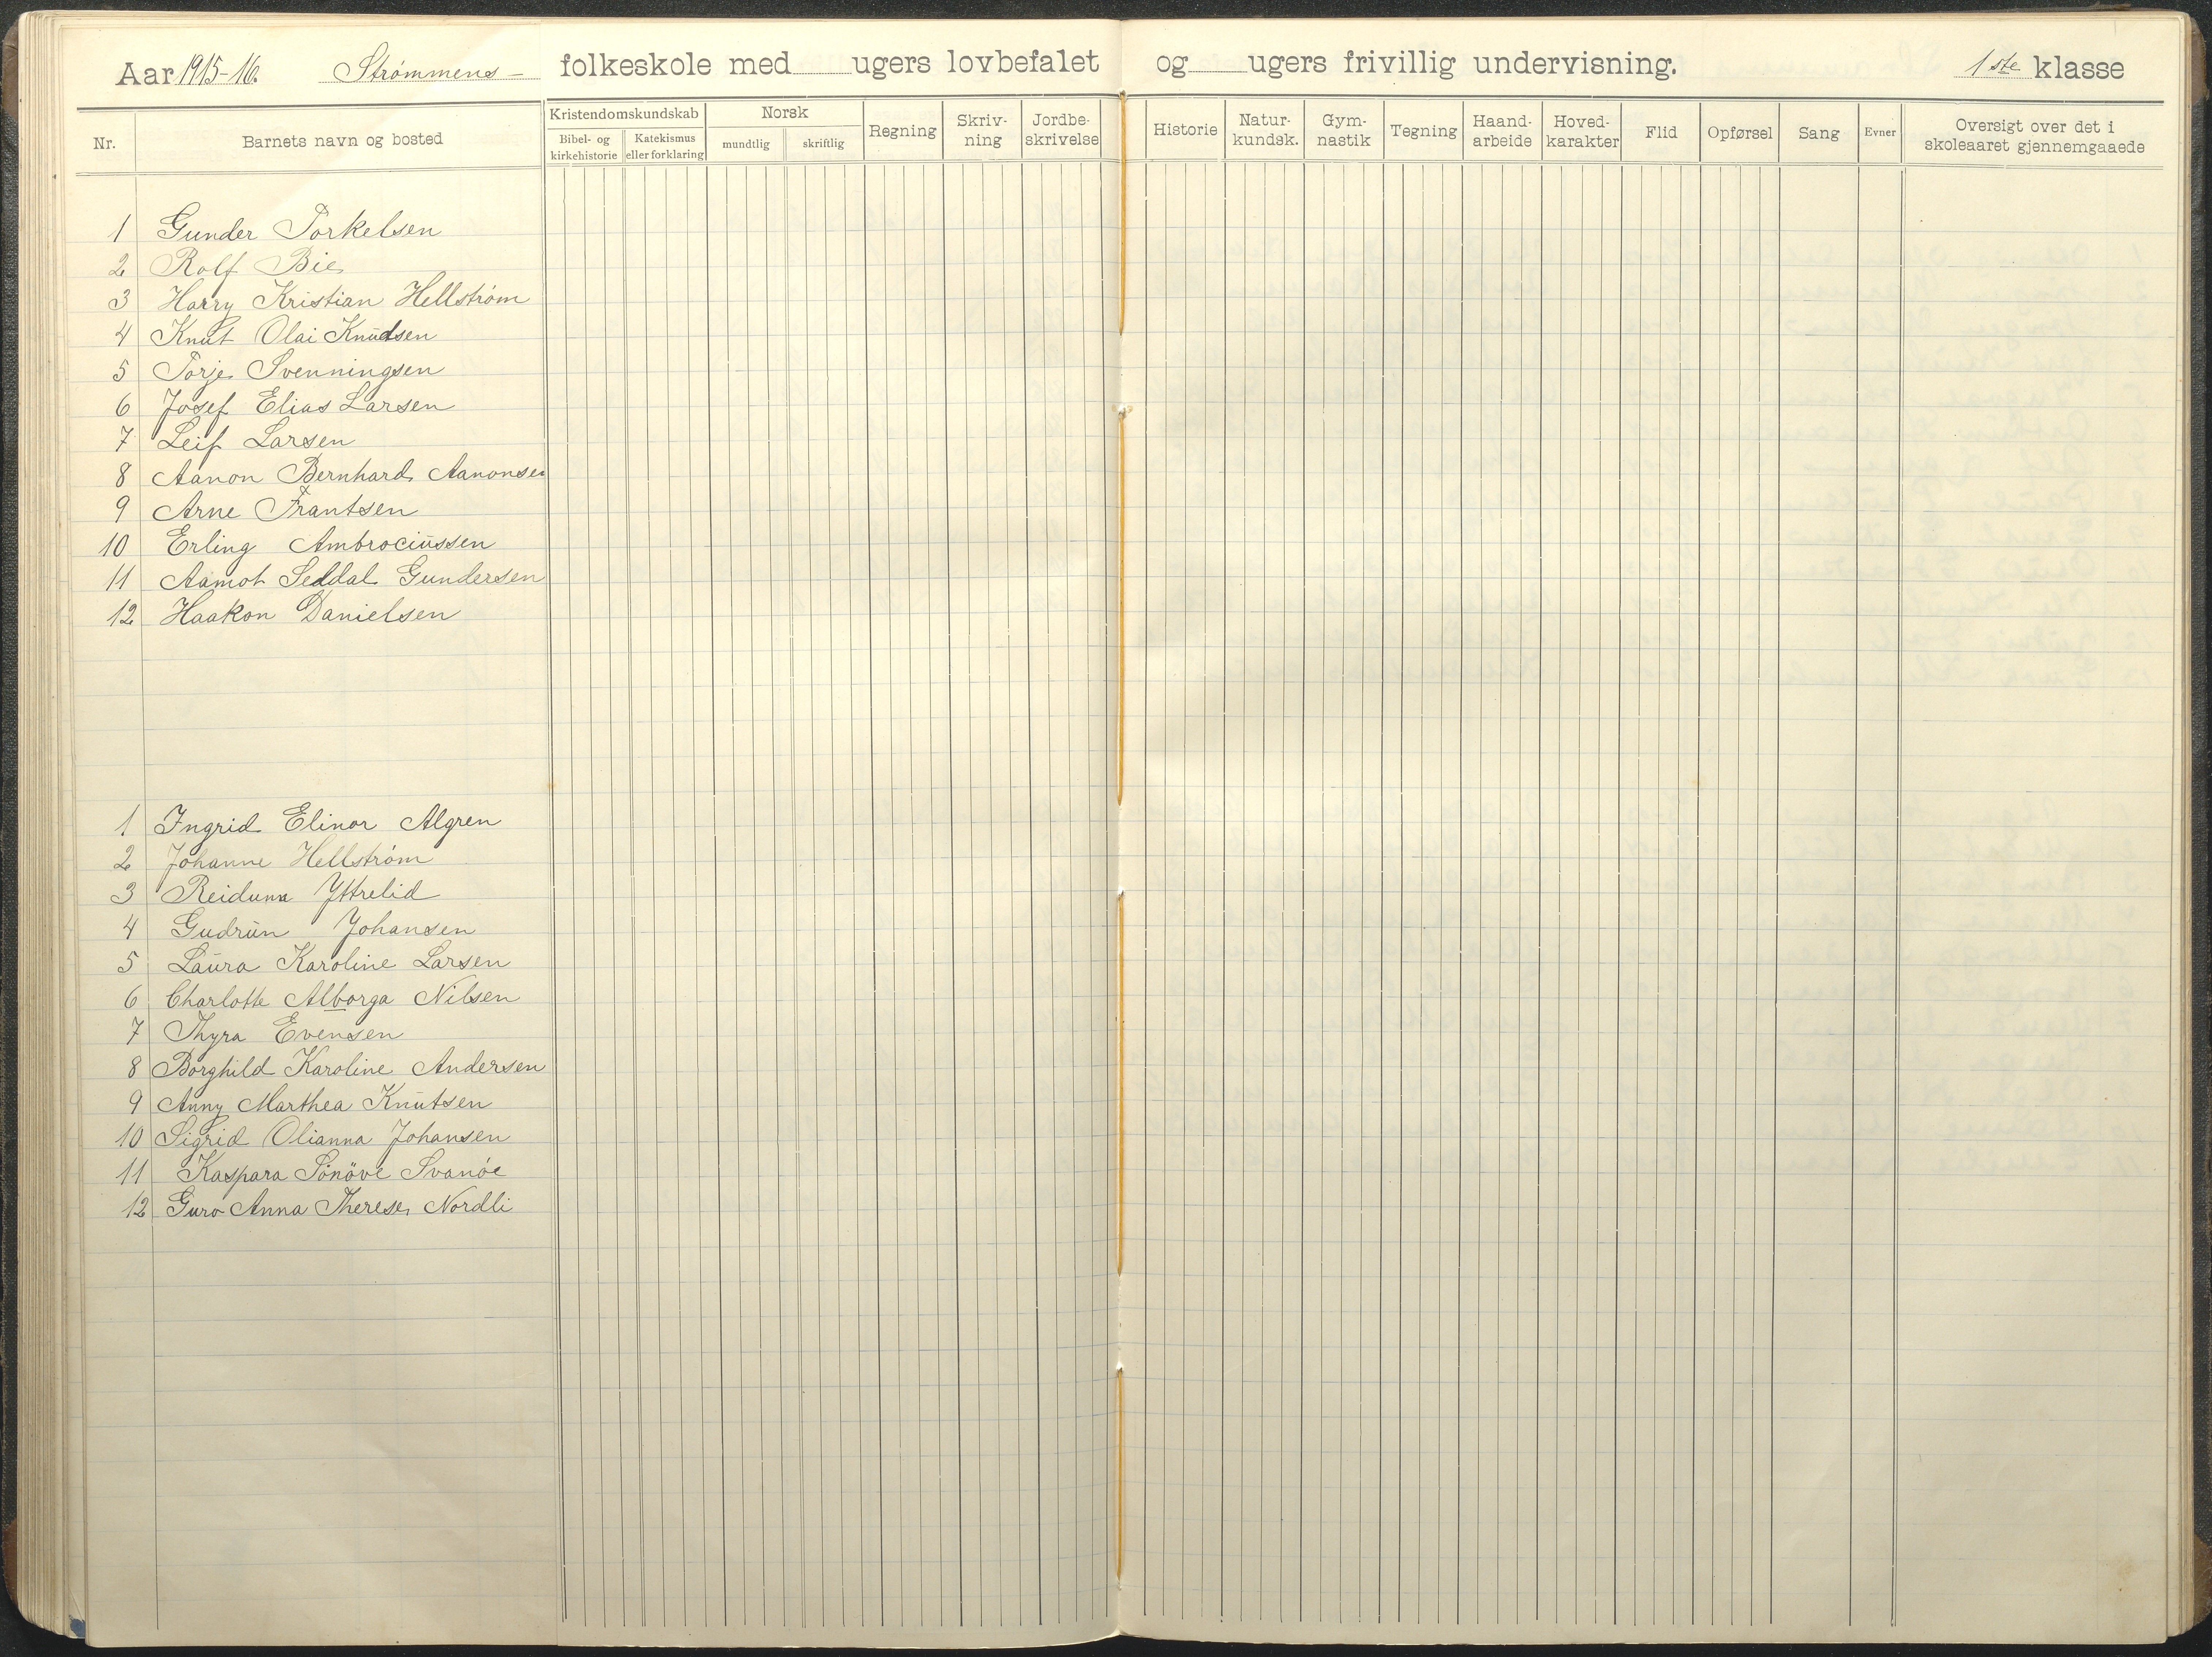 Aar 1915-16. Strømmens- folkeskole med ugers lovbefalet og ugers frivillig undervisning. 1ste klasse
Nr. Barnets navn og bosted
Kristendomskundskab
Bibel- og kirkehistorie
Katekismus eller forklaring
Norsk
mundtlig
skriftlig
Regning
Skriv-
ning
Jordbe-
skrivelse
Historie
Natur-
kundsk.
Gym-
nastik
Tegning
Haand-
arbeide
Hoved-
karakter
Flid
Opførsel
Sang
Evner
Oversigt over det i
skoleaaret gjennemgaaede
1 Gunder Torkelsen
2 Rolf Bie
3 Harry Kristian Hellstrøm
4 Knut Olai Knudsen
5 Torje Svenningsen
6 Josef Elias Larsen
7 Leif Larsen
8 Aanon Bernhard Aanonsen
9 Arne Frantsen
10 Erling Ambrociussen
11 Aamot Seddal Gundersen
12 Haakon Danielsen
1 Ingrid Elinor Algren
2 Johanne Hellstrøm
3 Reidunn Yttrelid
4 Gudrun Johansen
5 Laura Karoline Larsen
6 Charlotte Alborga Nilsen
7 Thyra Evensen
8 Borghild Karoline Andersen
9 Anny Marthea Knutsen
10 Sigrid Olianna Johansen
11 Kaspara Sönöve Svanøe
12 Guro Anna Therese Nordli